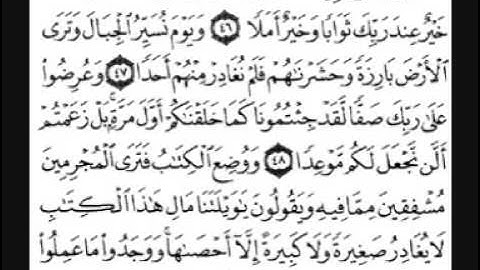 خَيْرٌ عِندَ رَبِّكَ ثَوَابًا وَخَيْرٌ أَمَلًا ٤٦ وَيَوْمَ نُسَيِّرُ الْجِبَالَ وَتَرَى
الْأَرْضَ بَارِزَةً وَحَشَرْنَٰهُمْ فَلَمْ نُغَادِرْ مِنْهُمْ أَحَدًا ٤٧ وَعُرِضُوا
عَلَىٰ رَبِّكَ صَفًّا لَّقَدْ جِئْتُمُونَا كَمَا خَلَقْنَٰكُمْ أَوَّلَ مَرَّةٍۭ بَلْ زَعَمْتُمْ
أَلَّن نَّجْعَلَ لَكُم مَّوْعِدًا ٤٨ وَوُضِعَ الْكِتَٰبُ فَتَرَى الْمُجْرِمِينَ
مُشْفِقِينَ مِمَّا فِيهِ وَيَقُولُونَ يَٰوَيْلَتَنَا مَالِ هَٰذَا الْكِتَٰبِ
لَا يُغَادِرُ صَغِيرَةً وَلَا كَبِيرَةً إِلَّا أَحْصَىٰهَا ۚ وَوَجَدُوا مَا عَمِلُوا